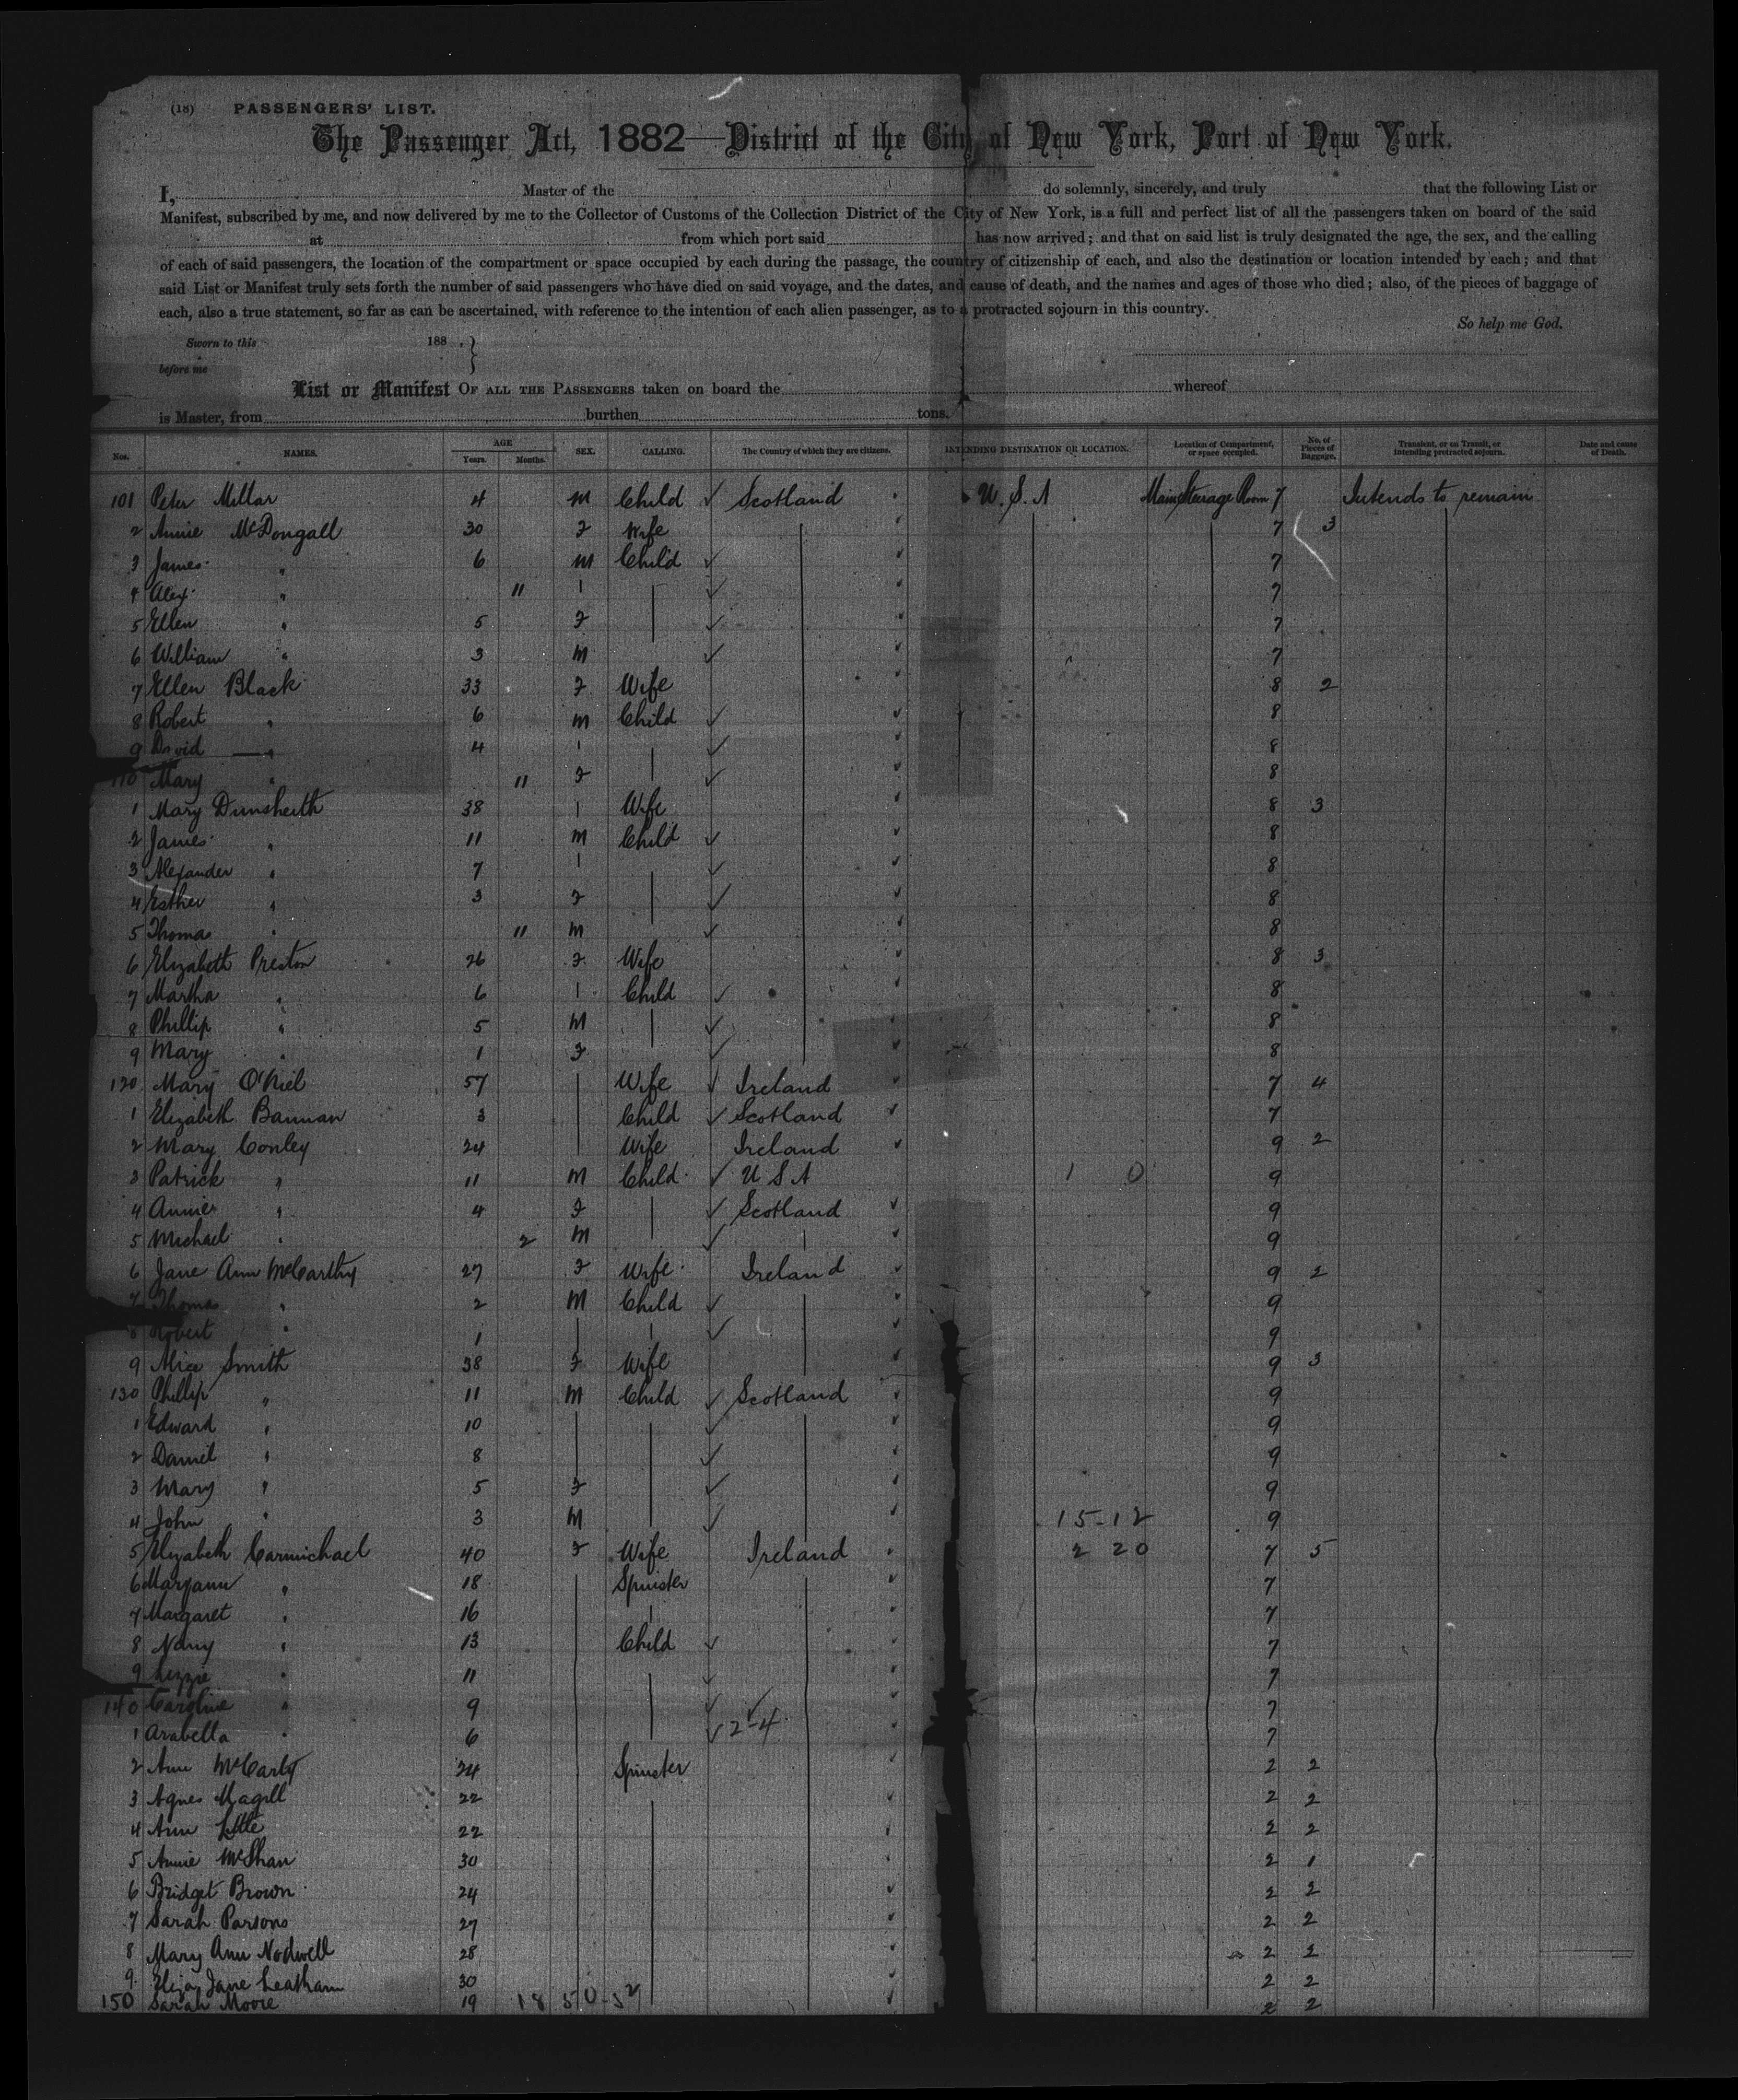 (18) PASSENGERS' LIST.
The Passenger Act, 1882—District of the City of New York, Port of New York.
I, Master of the do solemnly, sincerely, and truly that the following List or
Manifest, subscribed by me, and now delivered by me to the Collector of Customs of the Collection District of the City of New York, is a full and perfect list of all the passengers taken on board of the said
at from which port said has now arrived; and that on said list is truly designated the age, the sex, and the calling
of each of said passengers, the location of the compartment or space occupied by each during the passage, the country of citizenship of each, and also the destination or location intended by each; and that
said List or Manifest truly sets forth the number of said passengers who have died on said voyage, and the dates, and cause of death, and the names and ages of those who died; also, of the pieces of baggage of
each, also a true statement, so far as can be ascertained, with reference to the intention of each alien passenger, as to a protracted sojourn in this country.
So help me God.
Sworn to this 188 .
before me
List or Manifest OF ALL THE PASSENGERS taken on board the whereof
is Master, from burthen tons.
Nos. NAMES. AGE Years. Months. SEX. CALLING. The Country of which they are citizens. INTENDING DESTINATION OR LOCATION. Location of Compartment, or space occupied. No. of Pieces of Baggage. Transient, or on Transit, or intending protracted sojourn. Date and cause of Death.
101 Peter Millar 4 M Child ✓ Scotland U.S.A Main Steerage Room 7 Intends to remain
2 Annie McDougall 30 F Wife 7 3
3 James " 6 M Child ✓ 7
4 Alex " 11 ✓ 7
5 Ellen " 5 F ✓ 7
6 William " 3 M ✓ 7
7 Ellen Black 33 F Wife 8 2
8 Robert " 6 M Child ✓ 8
9 David " 4 ✓ 8
110 Mary " 11 F ✓ 8
1 Mary Dunsheith 38 Wife 8 3
2 James " 11 M Child ✓ 8
3 Alexander " 7 ✓ 8
4 Esther " 3 F ✓ 8
5 Thomas " 11 M ✓ 8
6 Elizabeth Preston 26 F Wife 8 3
7 Martha " 6 Child ✓ 8
8 Phillip " 5 M ✓ 8
9 Mary " 1 F ✓ 8
120 Mary O'Niel 57 Wife ✓ Ireland 7 4
1 Elizabeth Bannan 3 Child ✓ Scotland 7
2 Mary Conley 24 Wife Ireland 9 2
3 Patrick " 11 M Child ✓ U S A 1 0 9
4 Annie " 4 F ✓ Scotland 9
5 Michael " 2 M ✓ 9
6 Jane Ann McCarthy 27 F Wife Ireland 9 2
7 Thomas " 2 M Child ✓ 9
8 Robert " 1 ✓ 9
9 Alice Smith 38 F Wife 9 3
130 Phillip " 11 M Child ✓ Scotland 9
1 Edward " 10 ✓ 9
2 Daniel " 8 ✓ 9
3 Mary " 5 F ✓ 9
4 John " 3 M ✓ 15-12 9
5 Elizabeth Carmichael 40 F Wife Ireland 2 20 7 5
6 Maryann " 18 Spinster 7
7 Margaret " 16 7
8 Nancy " 13 Child ✓ 7
9 Lizzie " 11 ✓ 7
140 Caroline " 9 ✓ ✓ 7
1 Arabella " 6 ✓ 2-4 7
2 Ann McCarty 24 Spinster 2 2
3 Agnes Magill 22 2 2
4 Ann Little 22 2 2
5 Annie McShan 30 2 1
6 Bridget Brown 24 2 2
7 Sarah Parsons 27 2 2
8 Mary Ann Nodwell 28 2 2
9 Eliza Jane Leatham 30 2 2
150 Sarah Moore 19 18 50-52 2 2